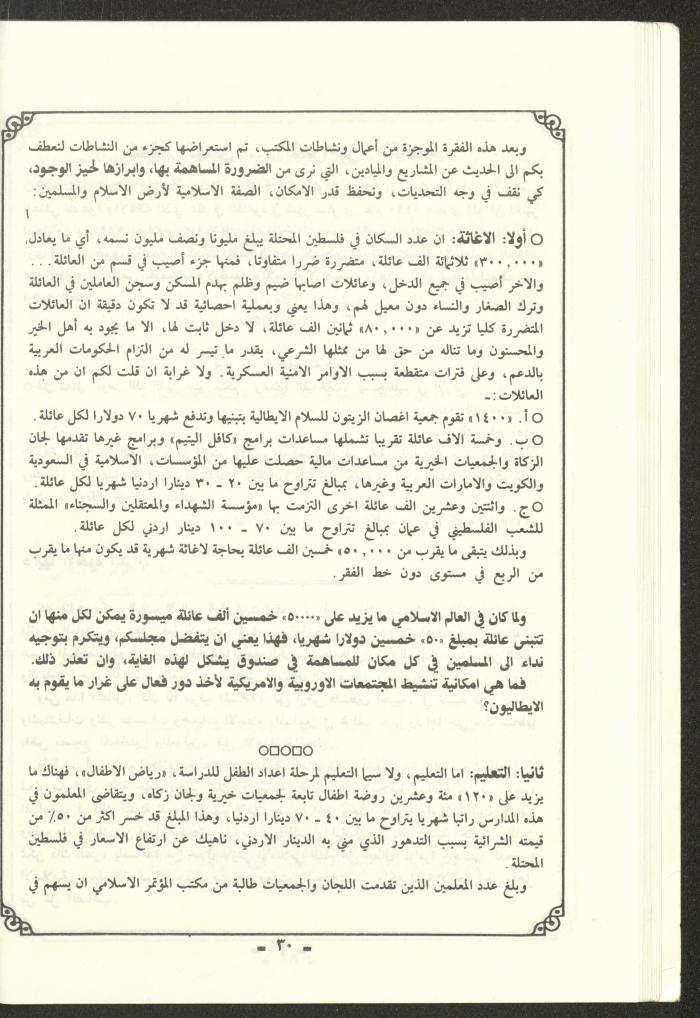 وبعد هذه الفقرة الموجزة من أعمال ونشاطات المكتب، تم استعراضها كجزء من النشاطات لنعطف
بكم الى الحديث عن المشاريع والميادين، التي نرى من الضرورة المساهمة بها، وابرازها لحيز الوجود،
كي نقف في وجه التحديات، ونحفظ قدر الامكان، الصفة الاسلامية لأرض الاسلام والمسلمين:
○ أولا: الاغاثة: ان عدد السكان في فلسطين المحتلة يبلغ مليونا ونصف مليون نسمه، أي ما يعادل
«٣٠٠,٠٠٠» ثلاثمائة الف عائلة، متضررة ضررا متفاوتا، فمنها جزء أصيب في قسم من العائلة...
والاخر أصيب في جميع الدخل، وعائلات اصابها ضيم وظلم بهدم المسكن وسجن العاملين في العائلة
وترك الصغار والنساء دون معيل لهم، وهذا يعني وبعملية احصائية قد لا تكون دقيقة ان العائلات
المتضررة كليا تزيد عن «٨٠,٠٠٠» ثمانين الف عائلة، لا دخل ثابت لها، الا ما يجود به أهل الخير
والمحسنون وما تناله من حق لها من ممثلها الشرعي، بقدر ما تيسر له من التزام الحكومات العربية
بالدعم، وعلى فترات متقطعة بسبب الاوامر الامنية العسكرية. ولا غرابة ان قلت لكم ان من هذه
العائلات:ـ
○ أ. «١٤٠٠» تقوم جمعية اغصان الزيتون للسلام الايطالية بتبنيها وتدفع شهريا ٧٠ دولارا لكل عائلة.
○ ب. وخمسة الاف عائلة تقريبا تشملها مساعدات برامج «كافل اليتيم» وبرامج غيرها تقدمها لجان
الزكاة والجمعيات الخيرية من مساعدات مالية حصلت عليها من المؤسسات، الاسلامية في السعودية
والكويت والامارات العربية وغيرها، بمبالغ تتراوح ما بين ٢٠ ـ ٣٠ دينارا اردنيا شهريا لكل عائلة.
○ ج. واثنتين وعشرين الف عائلة اخرى التزمت بها «مؤسسة الشهداء والمعتقلين والسجناء» الممثلة
للشعب الفلسطيني في عمان بمبالغ تتراوح ما بين ٧٠ ـ ١٠٠ دينار اردني لكل عائلة.
وبذلك يتبقى ما يقرب من ٥٠,٠٠٠» خمسين الف عائلة بحاجة لاغاثة شهرية قد يكون منها ما يقرب
من الربع في مستوى دون خط الفقر.
ولما كان في العالم الاسلامي ما يزيد على «٥٠٠٠٠» خمسين ألف عائلة ميسورة يمكن لكل منها ان
تتبنى عائلة بمبلغ «٥٠» خمسين دولارا شهريا، فهذا يعني ان يتفضل مجلسكم، ويتكرم بتوجيه
نداء الى المسلمين في كل مكان للمساهمة في صندوق يشكل لهذه الغاية، وان تعذر ذلك.
فما هي امكانية تنشيط المجتمعات الاوروبية والامريكية لأخذ دور فعال على غرار ما يقوم به
الايطاليون؟
○□○□○
ثانيا: التعليم: اما التعليم، ولا سيما التعليم لمرحلة اعداد الطفل للدراسة، «رياض الاطفال»، فهناك ما
يزيد على «١٢٠» مئة وعشرين روضة اطفال تابعة لجمعيات خيرية ولجان زكاه، ويتقاضى المعلمون في
هذه المدارس راتبا شهريا يتراوح ما بين ٤٠ ـ ٧٠ دينارا اردنيا، وهذا المبلغ قد خسر اكثر من ٥٠٪ من
قيمته الشرائية بسبب التدهور الذي مني به الدينار الاردني، ناهيك عن ارتفاع الاسعار في فلسطين
المحتلة.
وبلغ عدد المعلمين الذين تقدمت اللجان والجمعيات طالبة من مكتب المؤتمر الاسلامي ان يسهم في
ـ ٣٠ ـ